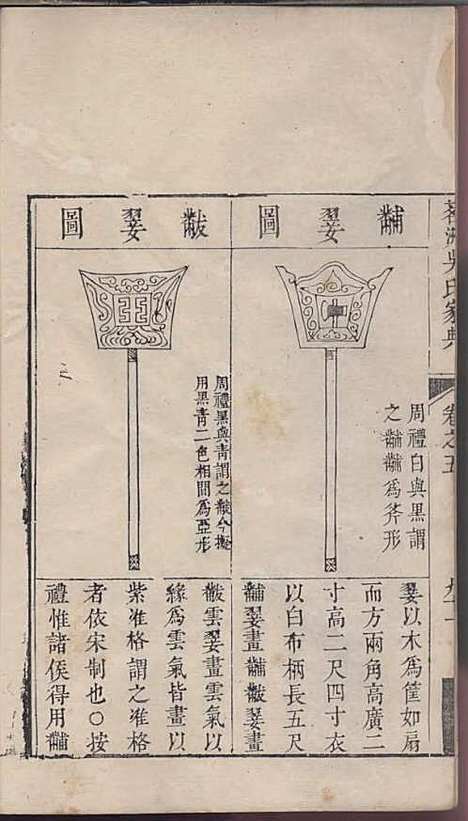 茗洲吳氏家典
卷之五
黼翣圖
周禮白與黑謂
之黼黼為斧形
翣以木為筐如扇
而方兩角高廣二
寸高二尺四寸衣
以白布柄長五尺
黼翣畫黼黻翣畫
黻翣圖
周禮黑與青謂之黻今擬
用黑青二色相間為亞形
黻雲翣畫雲氣以
緣為雲氣皆畫以
紫准格謂之准格
者依宋制也○按
禮惟諸侯得用黼